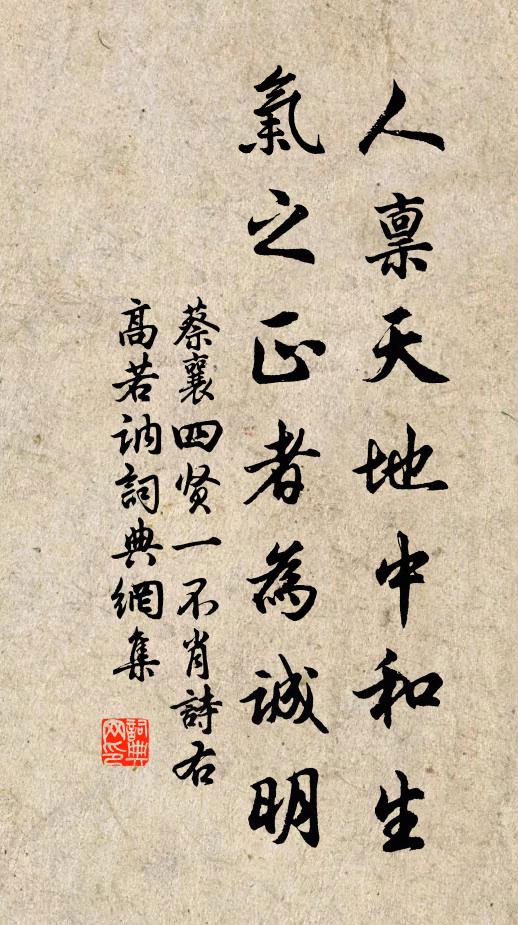 人禀天地中和生
氣之正者為誠明
蔡襄四贤一不肖詩右
高若訥詞典網集
詞典网印